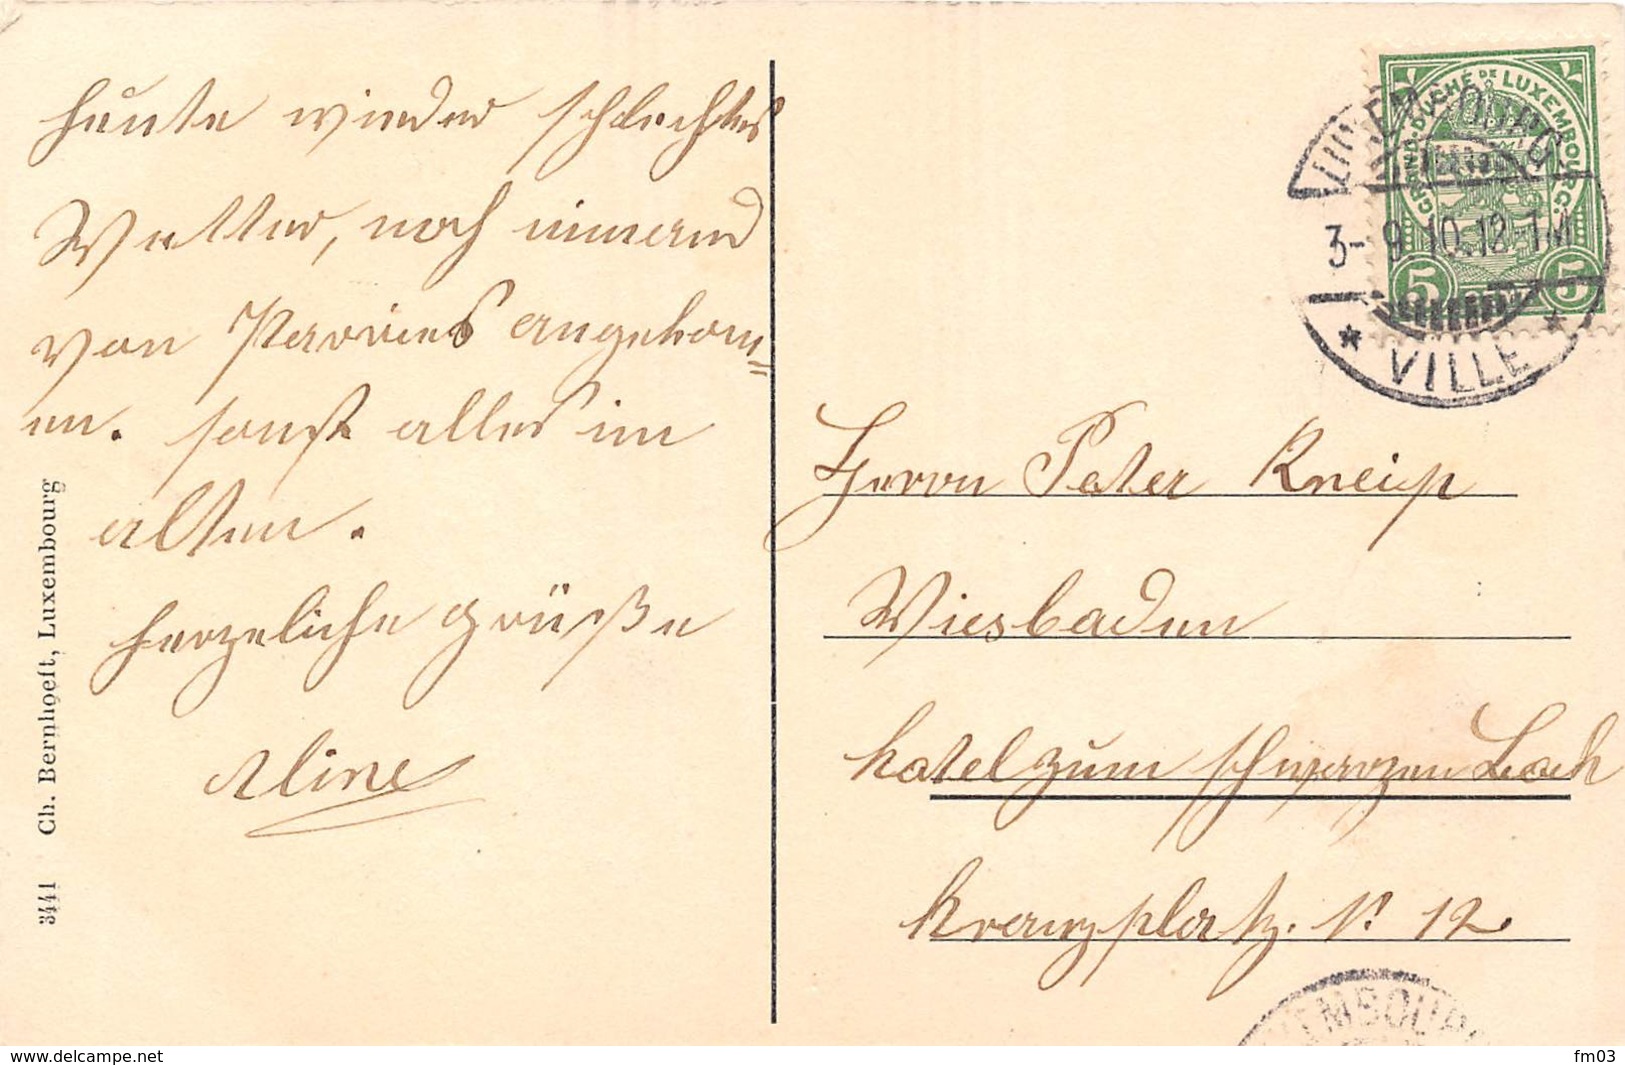 heute wieder schlechtes
Wetter, noch niemand
von Parries angekom=
en. sonst alles im
alten.
herzeliche grüße
Aline
3441 Ch. Bernhoeft, Luxembourg
GRAND-DUCHÉ DE LUXEMBOURG.
5 5
LUXEMBOURG
3-9.10.12-1M
* VILLE *
Herrn Peter Kneip
Wiesbaden
hotel zum schwarzen Bock
Kranzplatz. No 12
LUXEMBOURG
delcampe.net
fm03